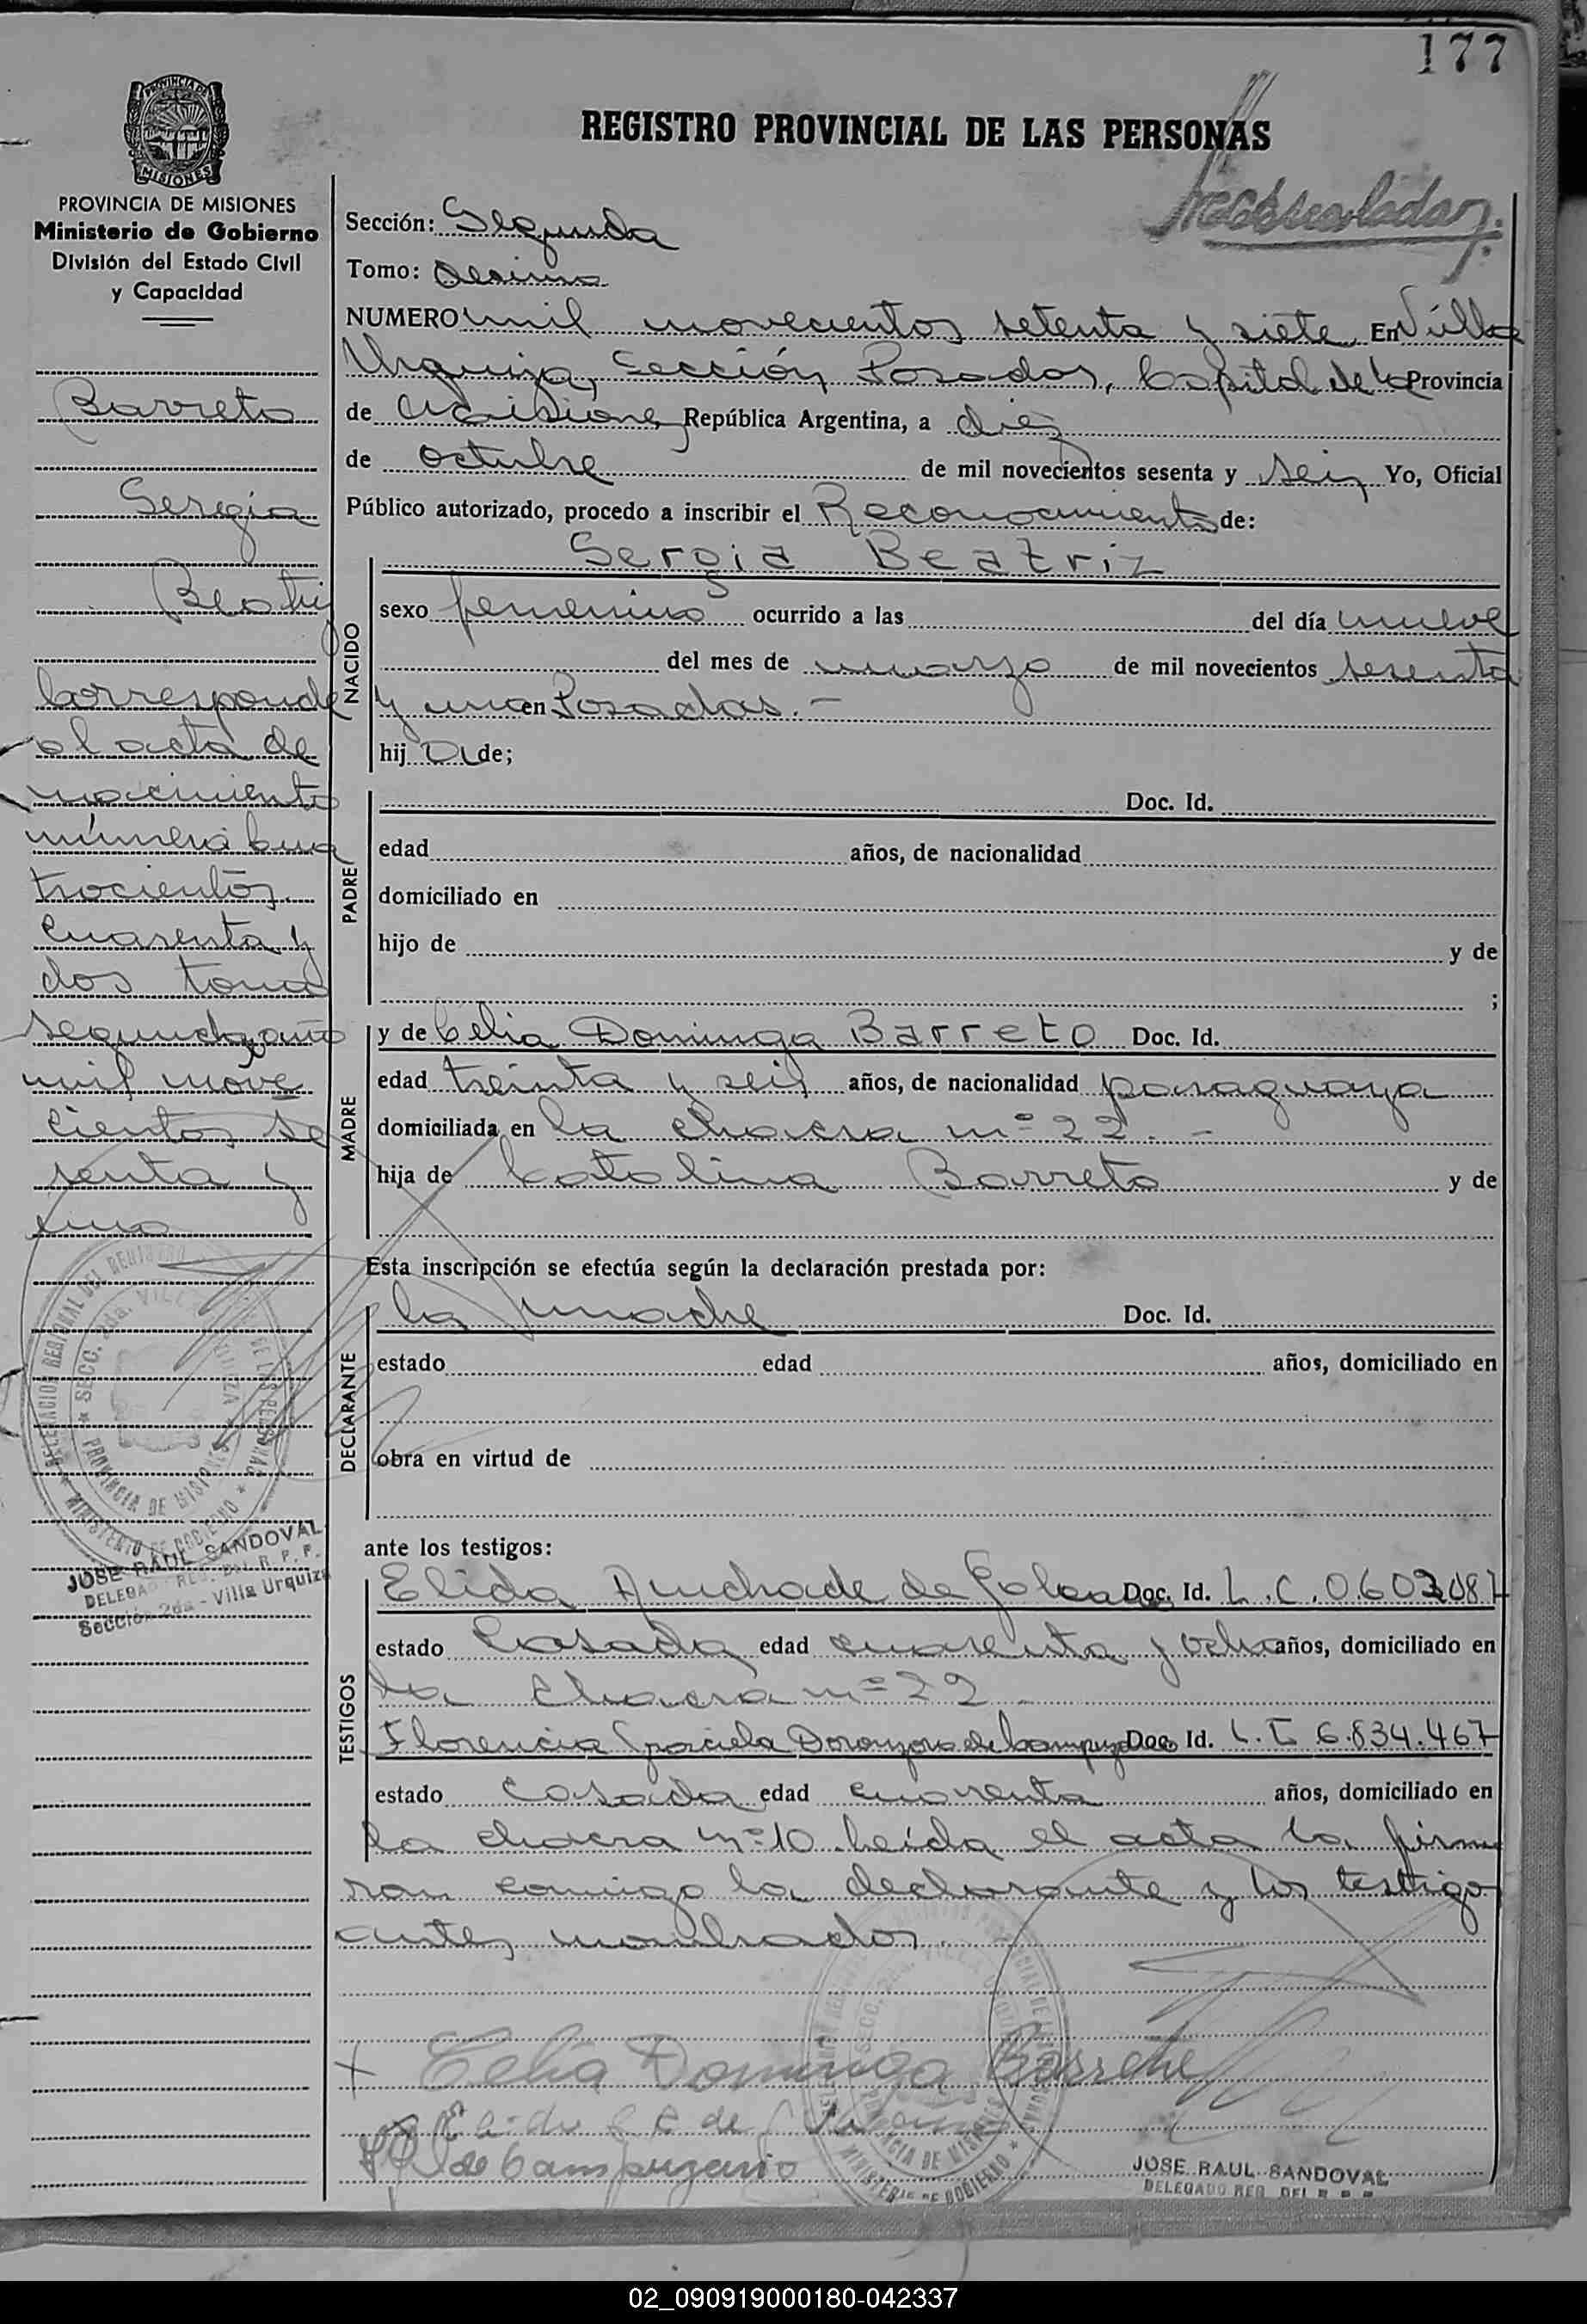 177
PROVINCIA DE
MISIONES
REGISTRO PROVINCIAL DE LAS PERSONAS
PROVINCIA DE MISIONES
Ministerio de Gobierno
División del Estado Civil
y Capacidad
Barreto
Sergia
Beatriz
Corresponde
al acta de
nacimiento
número cua
trocientos
cuarenta y
dos tomo
segundo año
mil nove
cientos se
senta y
uno
JOSE RAUL SANDOVAL
DELEGADO REG. DEL R. P. P.
Sección 2da - Villa Urquiza
Sección: Segunda
Tomo: Decimo
NUMERO mil novecientos setenta y siete En Villa
Urquiza, Sección Posadas, Capital de la Provincia
de Misiones República Argentina, a diez
de octubre de mil novecientos sesenta y seis Yo, Oficial
Público autorizado, procedo a inscribir el Reconocimiento de:
NACIDO
Sergia Beatriz
sexo femenino ocurrido a las del día nueve
del mes de marzo de mil novecientos sesenta
y uno en Posadas.-
hij a de;
PADRE
Doc. Id.
edad años, de nacionalidad
domiciliado en
hijo de y de
;
MADRE
y de Celia Dominga Barreto Doc. Id.
edad treinta y seis años, de nacionalidad paraguaya
domiciliada en la chacra nº 22.-
hija de Catolina Barreto y de
Esta inscripción se efectúa según la declaración prestada por:
DECLARANTE
la madre Doc. Id.
estado edad años, domiciliado en
obra en virtud de
ante los testigos:
TESTIGOS
Elida de Doc. Id. L.C.
estado Casada edad cuarenta y ocho años, domiciliado en
la chacra nº 22
Florencia Graciela de Campuzano Doc. Id. 6.834.467
estado casada edad cuarenta años, domiciliado en
la chacra nº 10. Leída el acta la firma
ron conmigo la declarante y los testigos
antes nombrados.
Celia Dominga Barrete
de Campuzano
JOSE RAUL SANDOVAL
DELEGADO REG. DEL R. P. P.
02_090919000180-042337